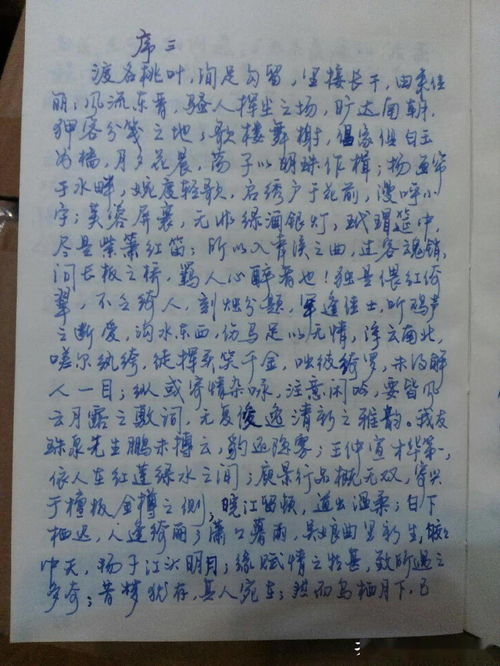 序三
渡名桃叶，洵足勾留，里接长干，由来佳
丽；风流东晋，骚人挥尘之场，旷达南朝，
狎客分笺之地；歌楼舞榭，倡家俱白玉
为樯，月夕花晨，荡子以明珠作楫；扬画帘
于水畔，婉度轻歌，启绣户于花前，漫呼小
字；芙蓉屏裹，无非绿酒银灯，玳瑁筵中，
尽是紫箫红笛；所以入青溪之曲，过客魂销，
问长板之桥，羁人心醉者也！独是偎红倚
翠，不乏绮人，刻烛分题，罕逢佳士，听鸡声
之断爱，沟水东西，伤马足以无情，浮云南北，
嗟尔纨绮，徒挥买笑千金，咄彼绮罗，未得解
人一目；纵或寄情杂咏，注意闲吟，要皆风
云月露之敷词，无复俊逸清新之雅韵。我友
珠泉先生鹏未搏云，豹还隐雾；王仲宣才华第一，
依人在红莲绿水之间；庾景行品概无双，寄兴
于檀板金樽之侧；晓江留顿，道出温柔；白下
栖迟，人逢绮丽；潇口暮雨，吴娘曲里新生，皎
中天，扬子江头明月；缘赋情之特甚，致所遇之
多奇；昔梦犹存，其人宛在；然而乌栖月下，已